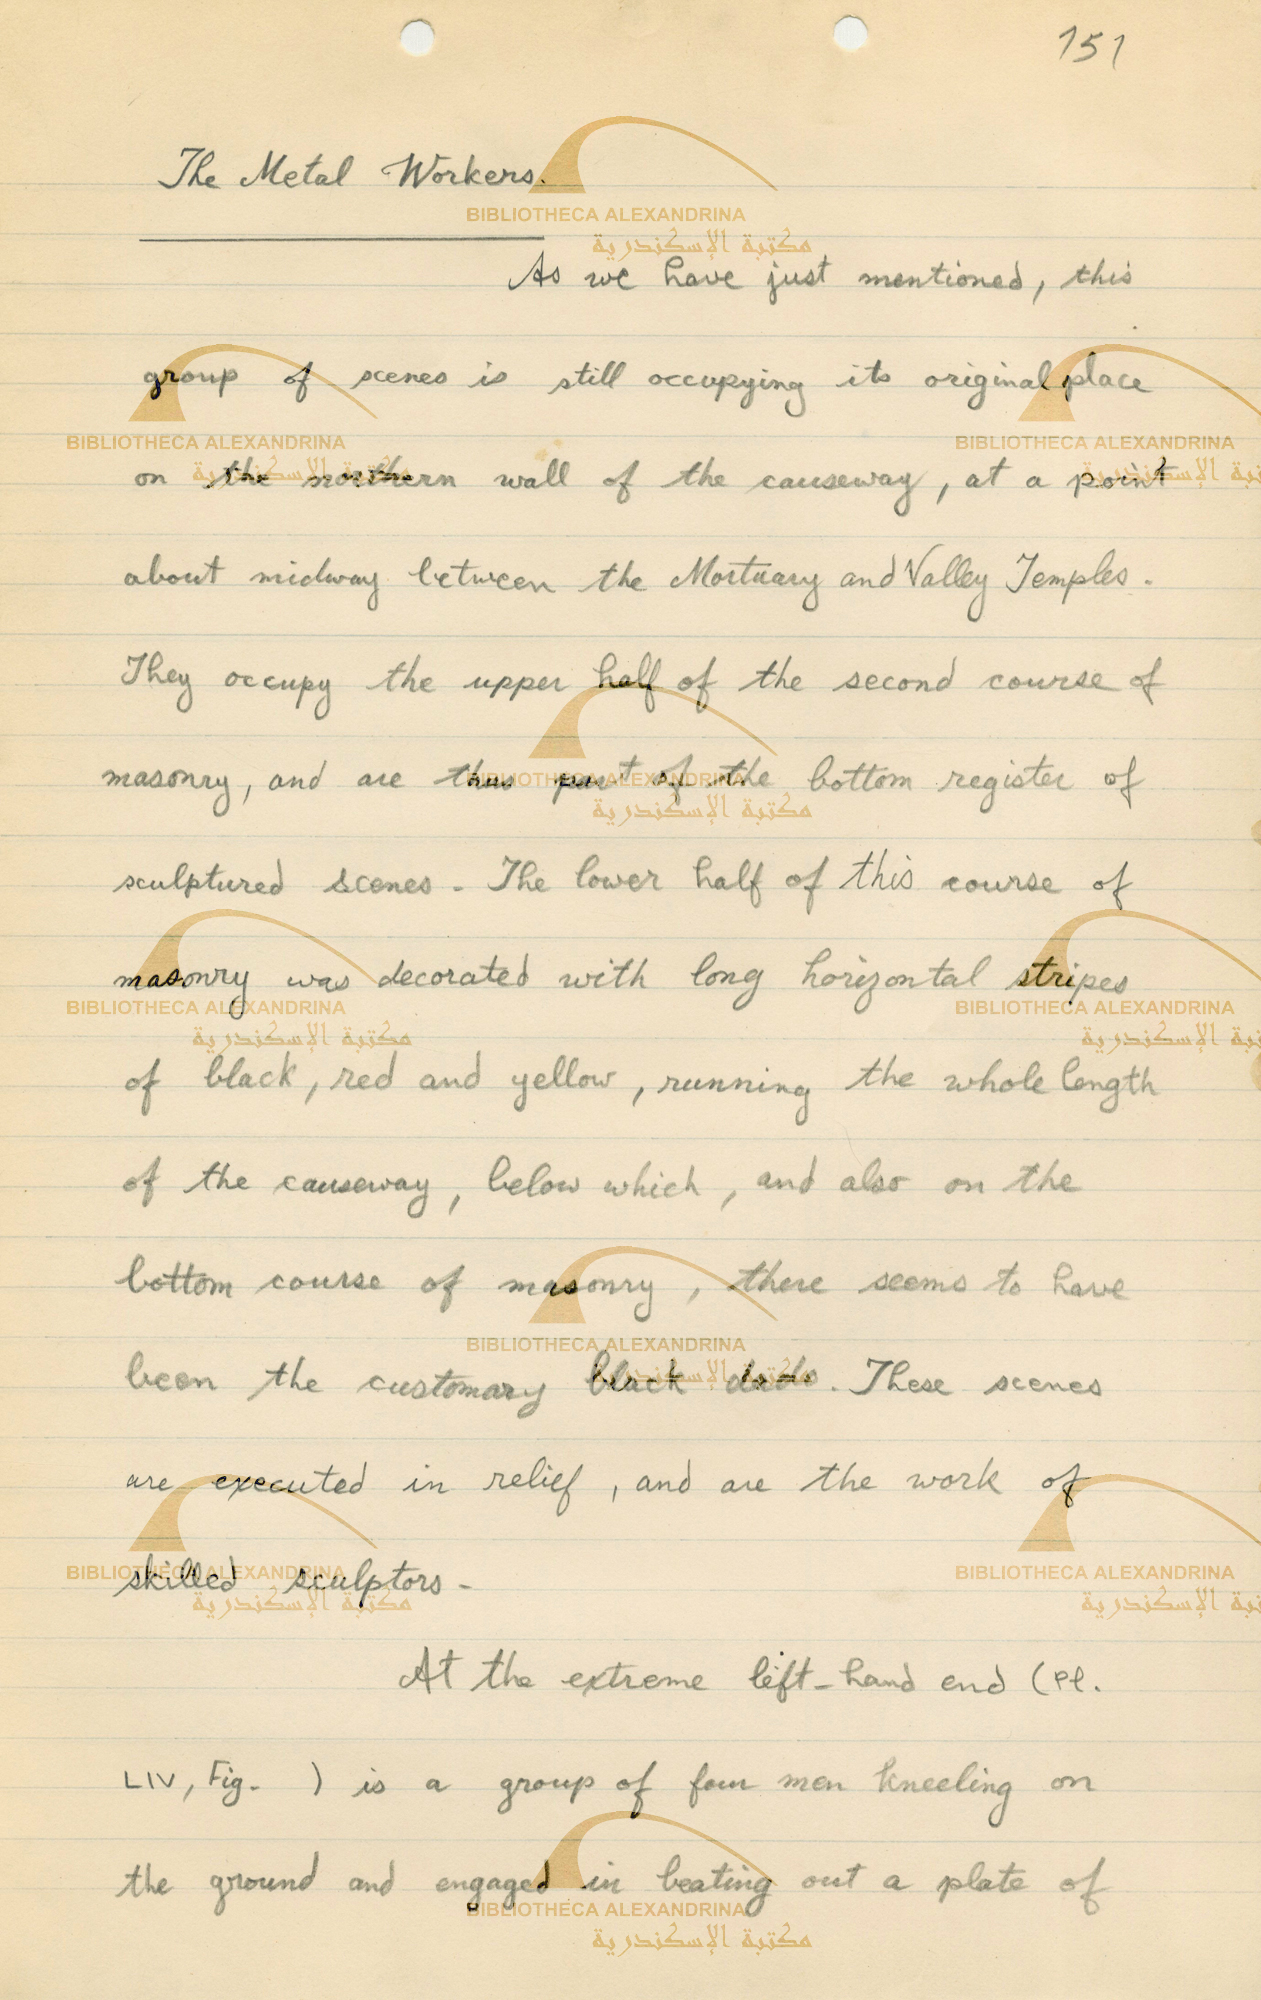 151
The Metal Workers.
As we have just mentioned, this
group of scenes is still occupying its original place
on the northern wall of the causeway, at a point
about midway between the Mortuary and Valley Temples.
They occupy the upper half of the second course of
masonry, and are thus part of the bottom register of
sculptured scenes. The lower half of this course of
masonry was decorated with long horizontal stripes
of black, red and yellow, running the whole length
of the causeway, below which, and also on the
bottom course of masonry, there seems to have
been the customary black dado. These scenes
are executed in relief, and are the work of
skilled sculptors.
At the extreme left-hand end (Pl.
LIV, Fig. ) is a group of four men kneeling on
the ground and engaged in beating out a plate of
BIBLIOTHECA ALEXANDRINA
مكتبة الإسكندرية